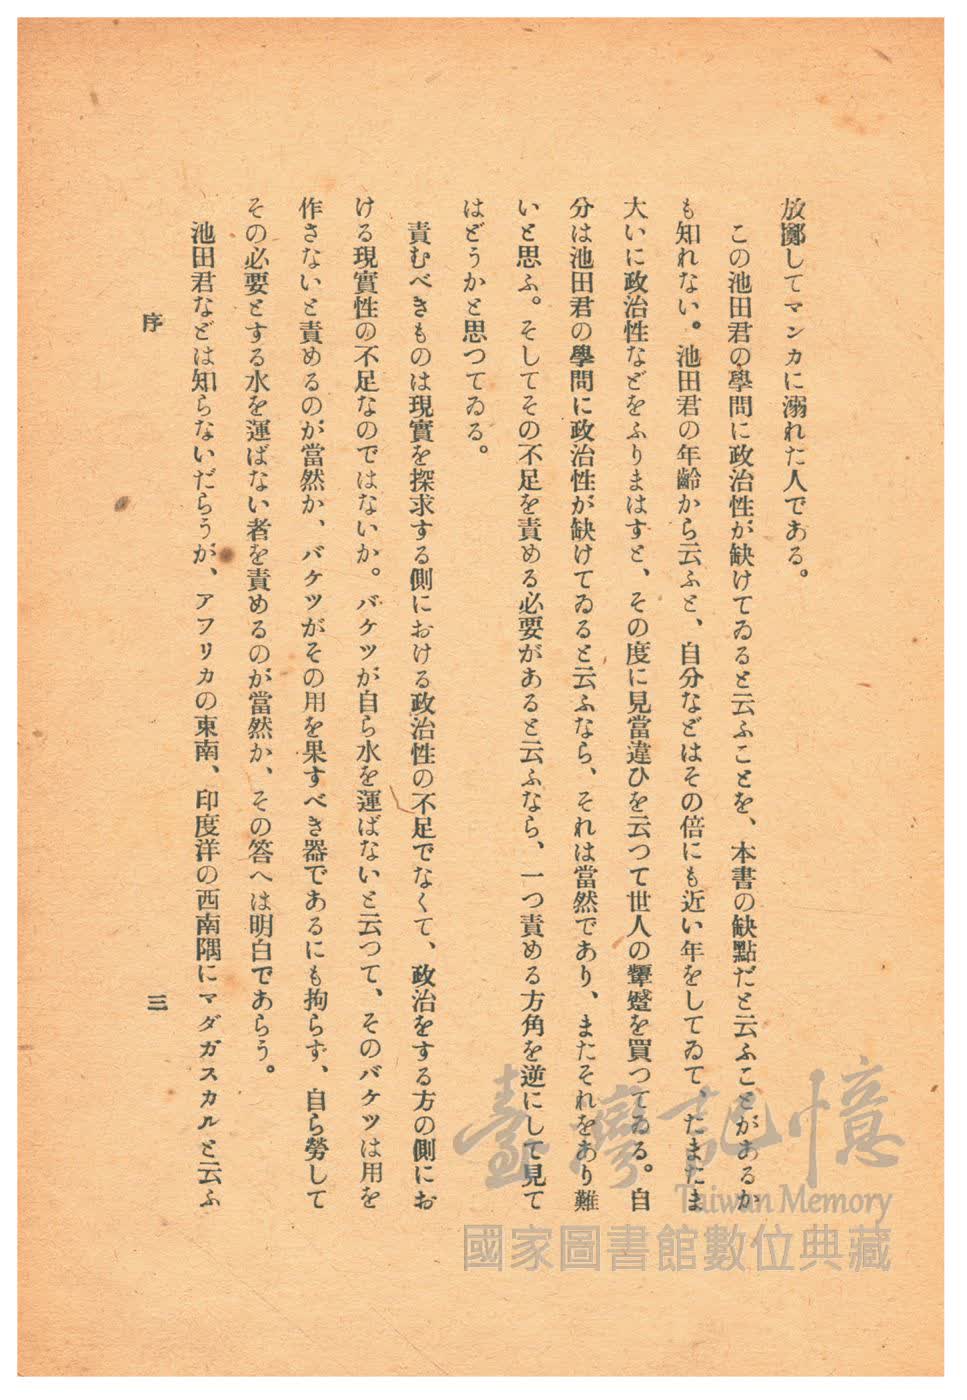 放擲してマンカに溺れた人である。
この池田君の學問に政治性が缺けてゐると云ふことを、本書の缺點だと云ふことがあるか
も知れない。池田君の年齡から云ふと、自分などはその倍にも近い年をしてゐて、たまたま
大いに政治性などをふりまはすと、その度に見當違ひを云つて世人の顰蹙を買つてゐる。自
分は池田君の學問に政治性が缺けてゐると云ふなら、それは當然であり、またそれをあり難
いと思ふ。そしてその不足を責める必要があると云ふなら、一つ責める方角を逆にして見て
はどうかと思つてゐる。
責むべきものは現實を探求する側における政治性の不足でなくて、政治をする方の側にお
ける現實性の不足なのではないか。バケツが自ら水を運ばないと云つて、そのバケツは用を
作さないと責めるのが當然か、バケツがその用を果すべき器であるにも拘らず、自ら勞して
その必要とする水を運ばない者を責めるのが當然か、その答へは明白であらう。
池田君などは知らないだらうが、アフリカの東南、印度洋の西南隅にマダガスカルと云ふ
序
三
臺灣記憶
Taiwan Memory
國家圖書館數位典藏